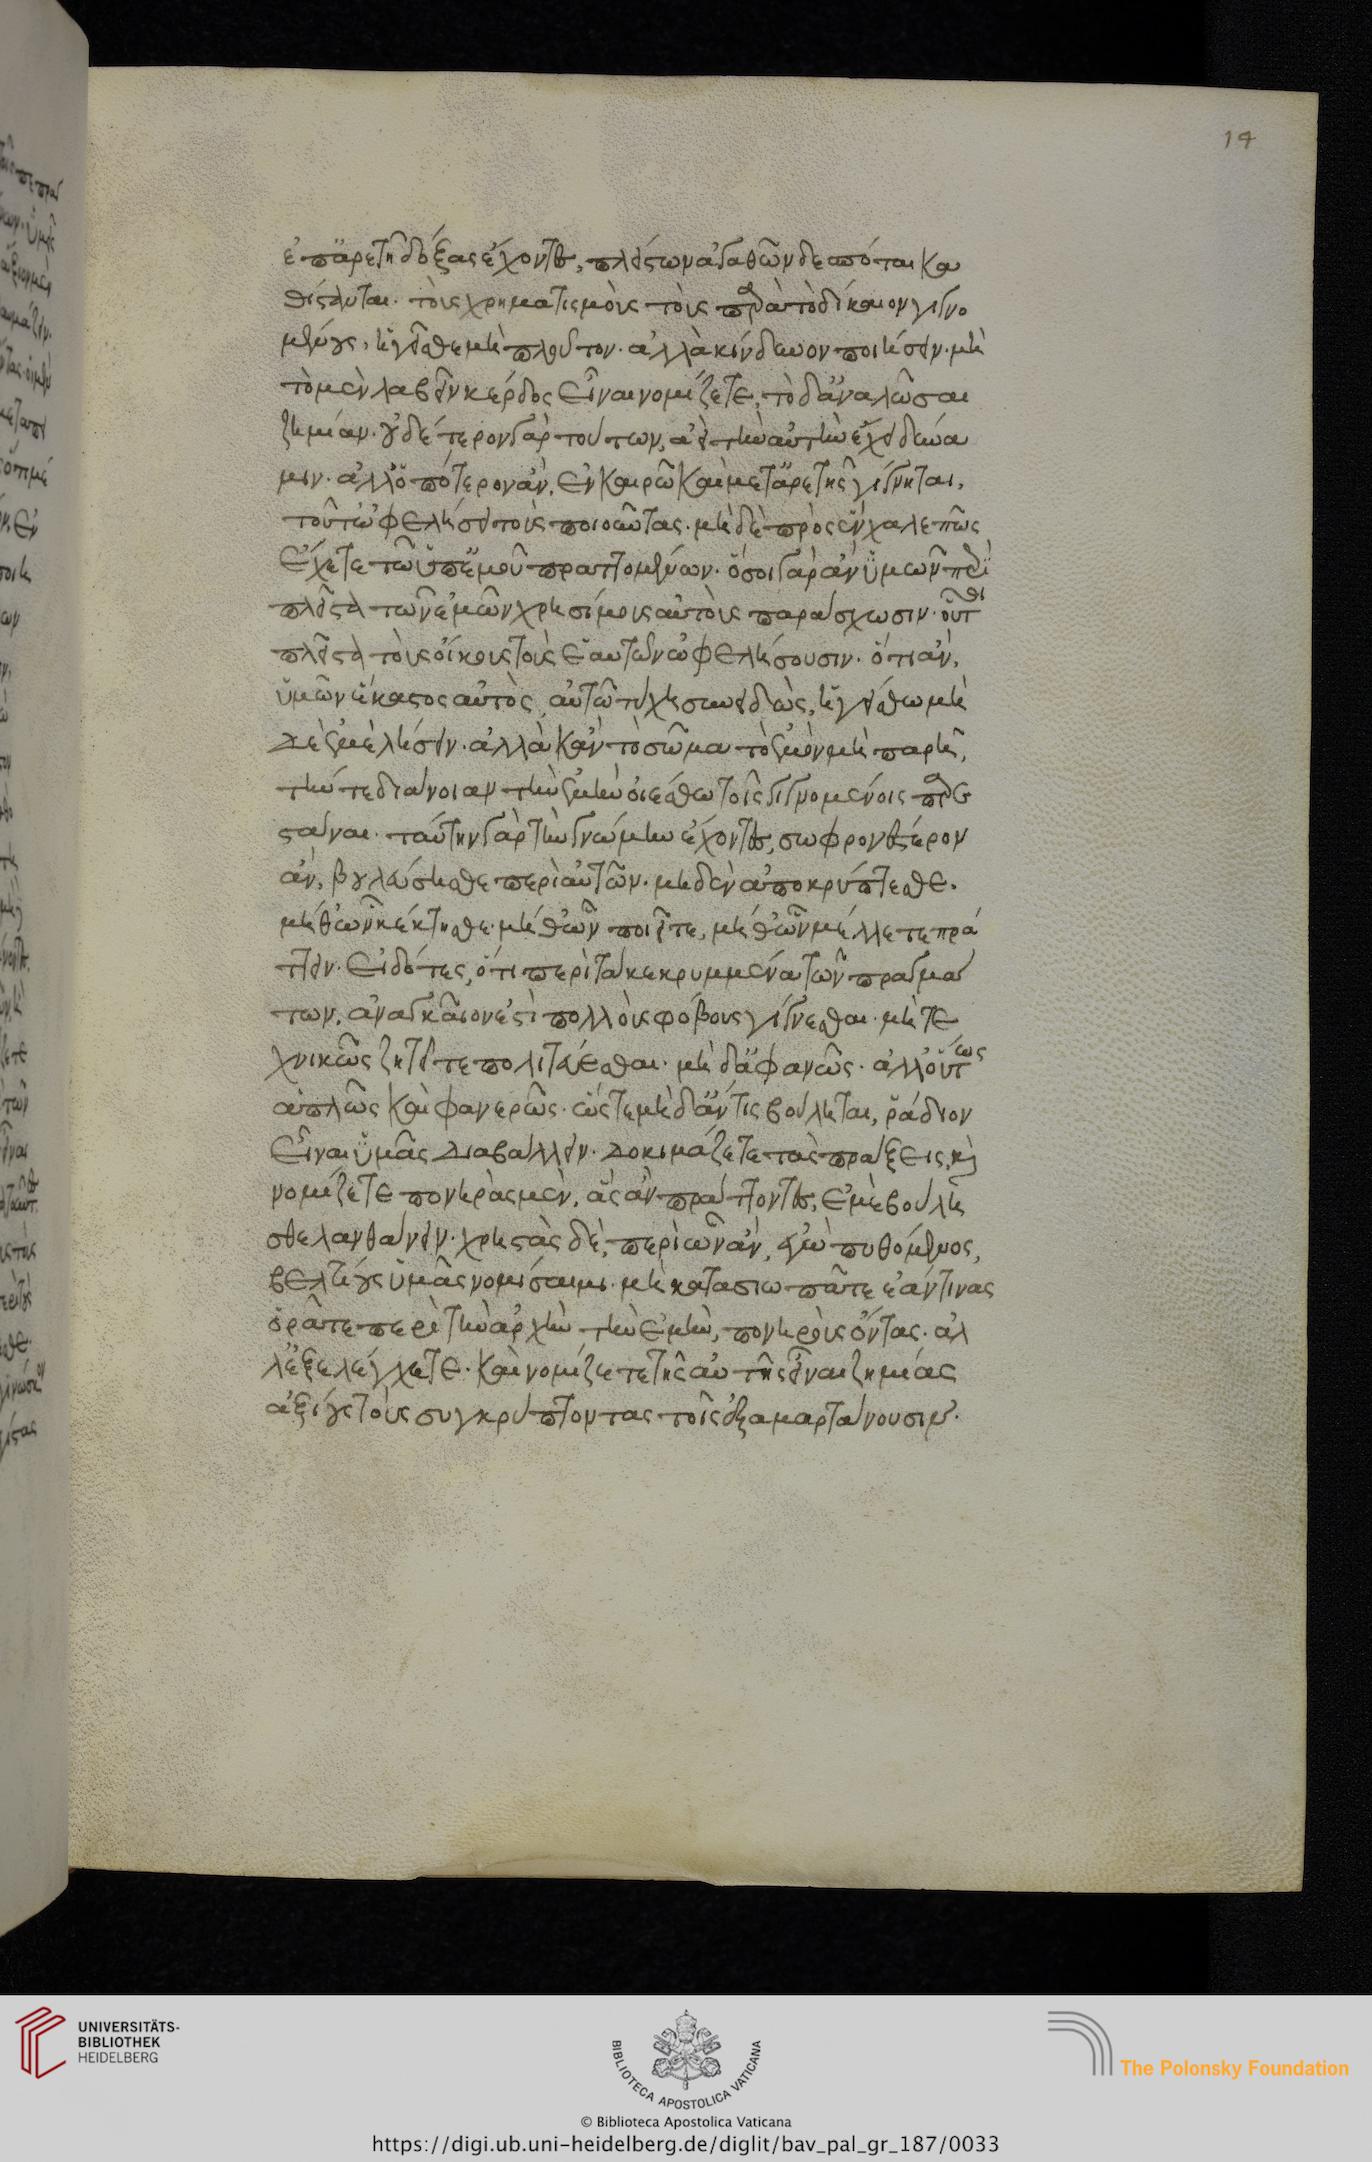 14
ἐπ' ἀρετῇ δόξας ἔχοντες, πλείστων ἀγαθῶν δεσπόται κα
θίστανται. τοὺς χρηματισμοὺς τοὺς παρὰ τὸ δίκαιον γιγνο
μένους, ἡγεῖσθε μὴ πλοῦτον. ἀλλὰ κίνδυνον ποιήσειν. μὴ
τὸ μὲν λαβεῖν κέρδος εἶναι νομίζετε, τὸ δ' ἀναλῶσαι
ζημίαν. οὐδέτερον γὰρ τούτων, ἀεὶ τὴν αὐτὴν ἔχει δύνα
μιν. ἀλλ' ὁπότερον ἂν, ἐν καιρῷ καὶ μετ' ἀρετῆς γίγνηται,
τοῦτ' ὠφελήσει τοὺς ποιοῦντας. μηδὲ πρὸς ἓν χαλεπῶς
ἔχετε τῶν ὑπ' ἐμοῦ πραττομένων. ὅσοι γὰρ ἂν ὑμῶν περὶ
πλεῖστα τῶν ἐμῶν χρησίμους αὑτοὺς παράσχωσιν. οὗτοι
πλεῖστα τοὺς οἴκους τοὺς ἑαυτῶν ὠφελήσουσιν. ὅτι ἂν,
ὑμῶν ἕκαστος αὐτὸς αὑτῷ τύχῃ συνειδὼς, ἡγείσθω μη
δὲ ἐμὲ λήσειν. ἀλλὰ κἂν τὸ σῶμα τὸ ἐμὸν μὴ παρῇ,
τήν τε διάνοιαν τὴν ἐμὴν οἰέσθω τοῖς γιγνομένοις παρε
στάναι. ταύτην γὰρ τὴν γνώμην ἔχοντες, σωφρονέστερον
ἂν, βουλεύσησθε περὶ αὐτῶν. μηδὲν ἀποκρύπτεσθε.
μήθ' ὧν κέκτησθε. μήθ' ὧν ποιεῖτε, μήθ' ὧν μέλλετε πρά
ττειν. εἰδότες, ὅτι περὶ τὰ κεκρυμμένα τῶν πραγμά
των, ἀναγκαῖόν ἐστι πολλοὺς φόβους γίγνεσθαι. μὴ τε
χνικῶς ζητεῖτε πολιτεύεσθαι. μηδ' ἀφανῶς. ἀλλ' οὕτως
ἁπλῶς καὶ φανερῶς. ὥστε μηδ' ἄν τις βούληται, ῥάδιον
εἶναι ὑμᾶς διαβάλλειν. δοκιμάζετε τὰς πράξεις, καὶ
νομίζετε πονηρὰς μὲν, ἃς ἂν πράττοντες, ἐμὲ βούλη
σθε λανθάνειν. χρηστὰς δὲ, περὶ ὧν ἂν, ἐγὼ πυθόμενος,
βελτίους ὑμᾶς νομίσαιμι. μὴ κατασιωπᾶτε ἐάν τινας
ὁρᾶτε περὶ τὴν ἀρχὴν τὴν ἐμὴν, πονηροὺς ὄντας. ἀλ
λ' ἐξελέγχετε. καὶ νομίζετε τῆς αὐτῆς εἶναι ζημίας
ἀξίους τοὺς συγκρύπτοντας τοῖς ἐξαμαρτάνουσιν.
UNIVERSITÄTS-
BIBLIOTHEK
HEIDELBERG
BIBLIOTECA APOSTOLICA VATICANA
The Polonsky Foundation
© Biblioteca Apostolica Vaticana
https://digi.ub.uni-heidelberg.de/diglit/bav_pal_gr_187/0033